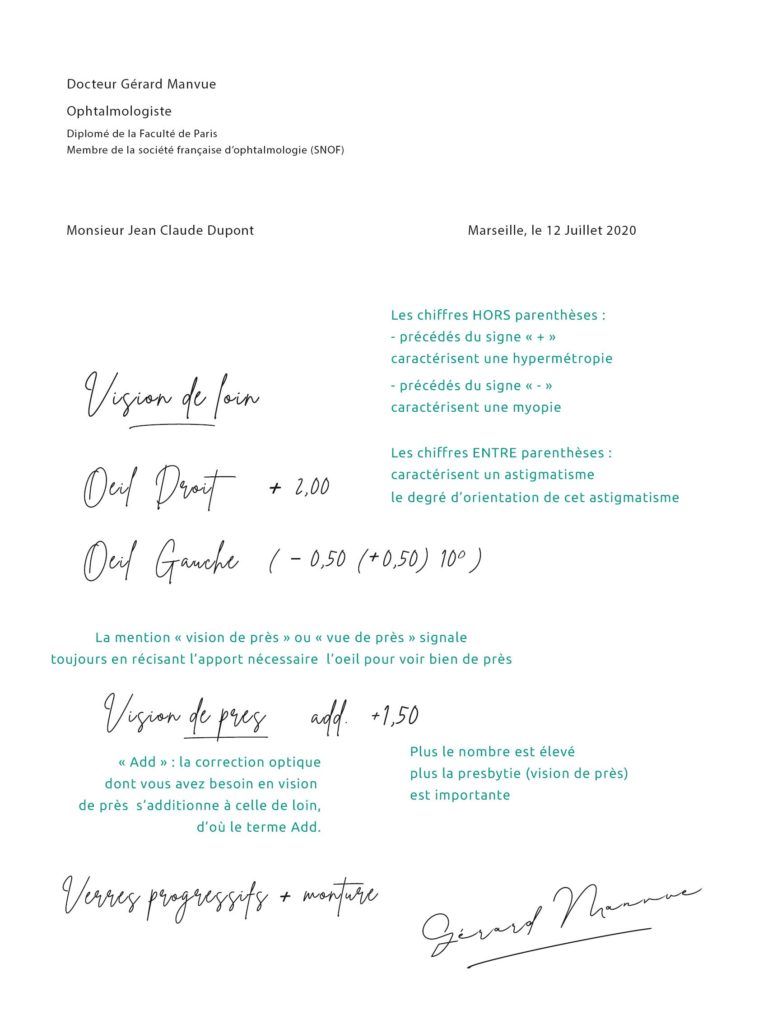 Docteur Gérard Manvue
Ophtalmologiste
Diplomé de la Faculté de Paris
Membre de la société française d'ophtalmologie (SNOF)
Monsieur Jean Claude Dupont
Marseille, le 12 Juillet 2020
Les chiffres HORS parenthèses :
- précédés du signe « + »
caractérisent une hypermétropie
- précédés du signe « - »
caractérisent une myopie
Vision de loin
Les chiffres ENTRE parenthèses :
caractérisent un astigmatisme
le degré d'orientation de cet astigmatisme
Oeil Droit + 2,00
Oeil Gauche ( - 0,50 (+0,50) 10° )
La mention « vision de près » ou « vue de près » signale
toujours en récisant l'apport nécessaire l'oeil pour voir bien de près
Vision de pres add. +1,50
« Add » : la correction optique
dont vous avez besoin en vision
de près s'additionne à celle de loin,
d'où le terme Add.
Plus le nombre est élevé
plus la presbytie (vision de près)
est importante
Verres progressifs + monture
Gérard Manvue